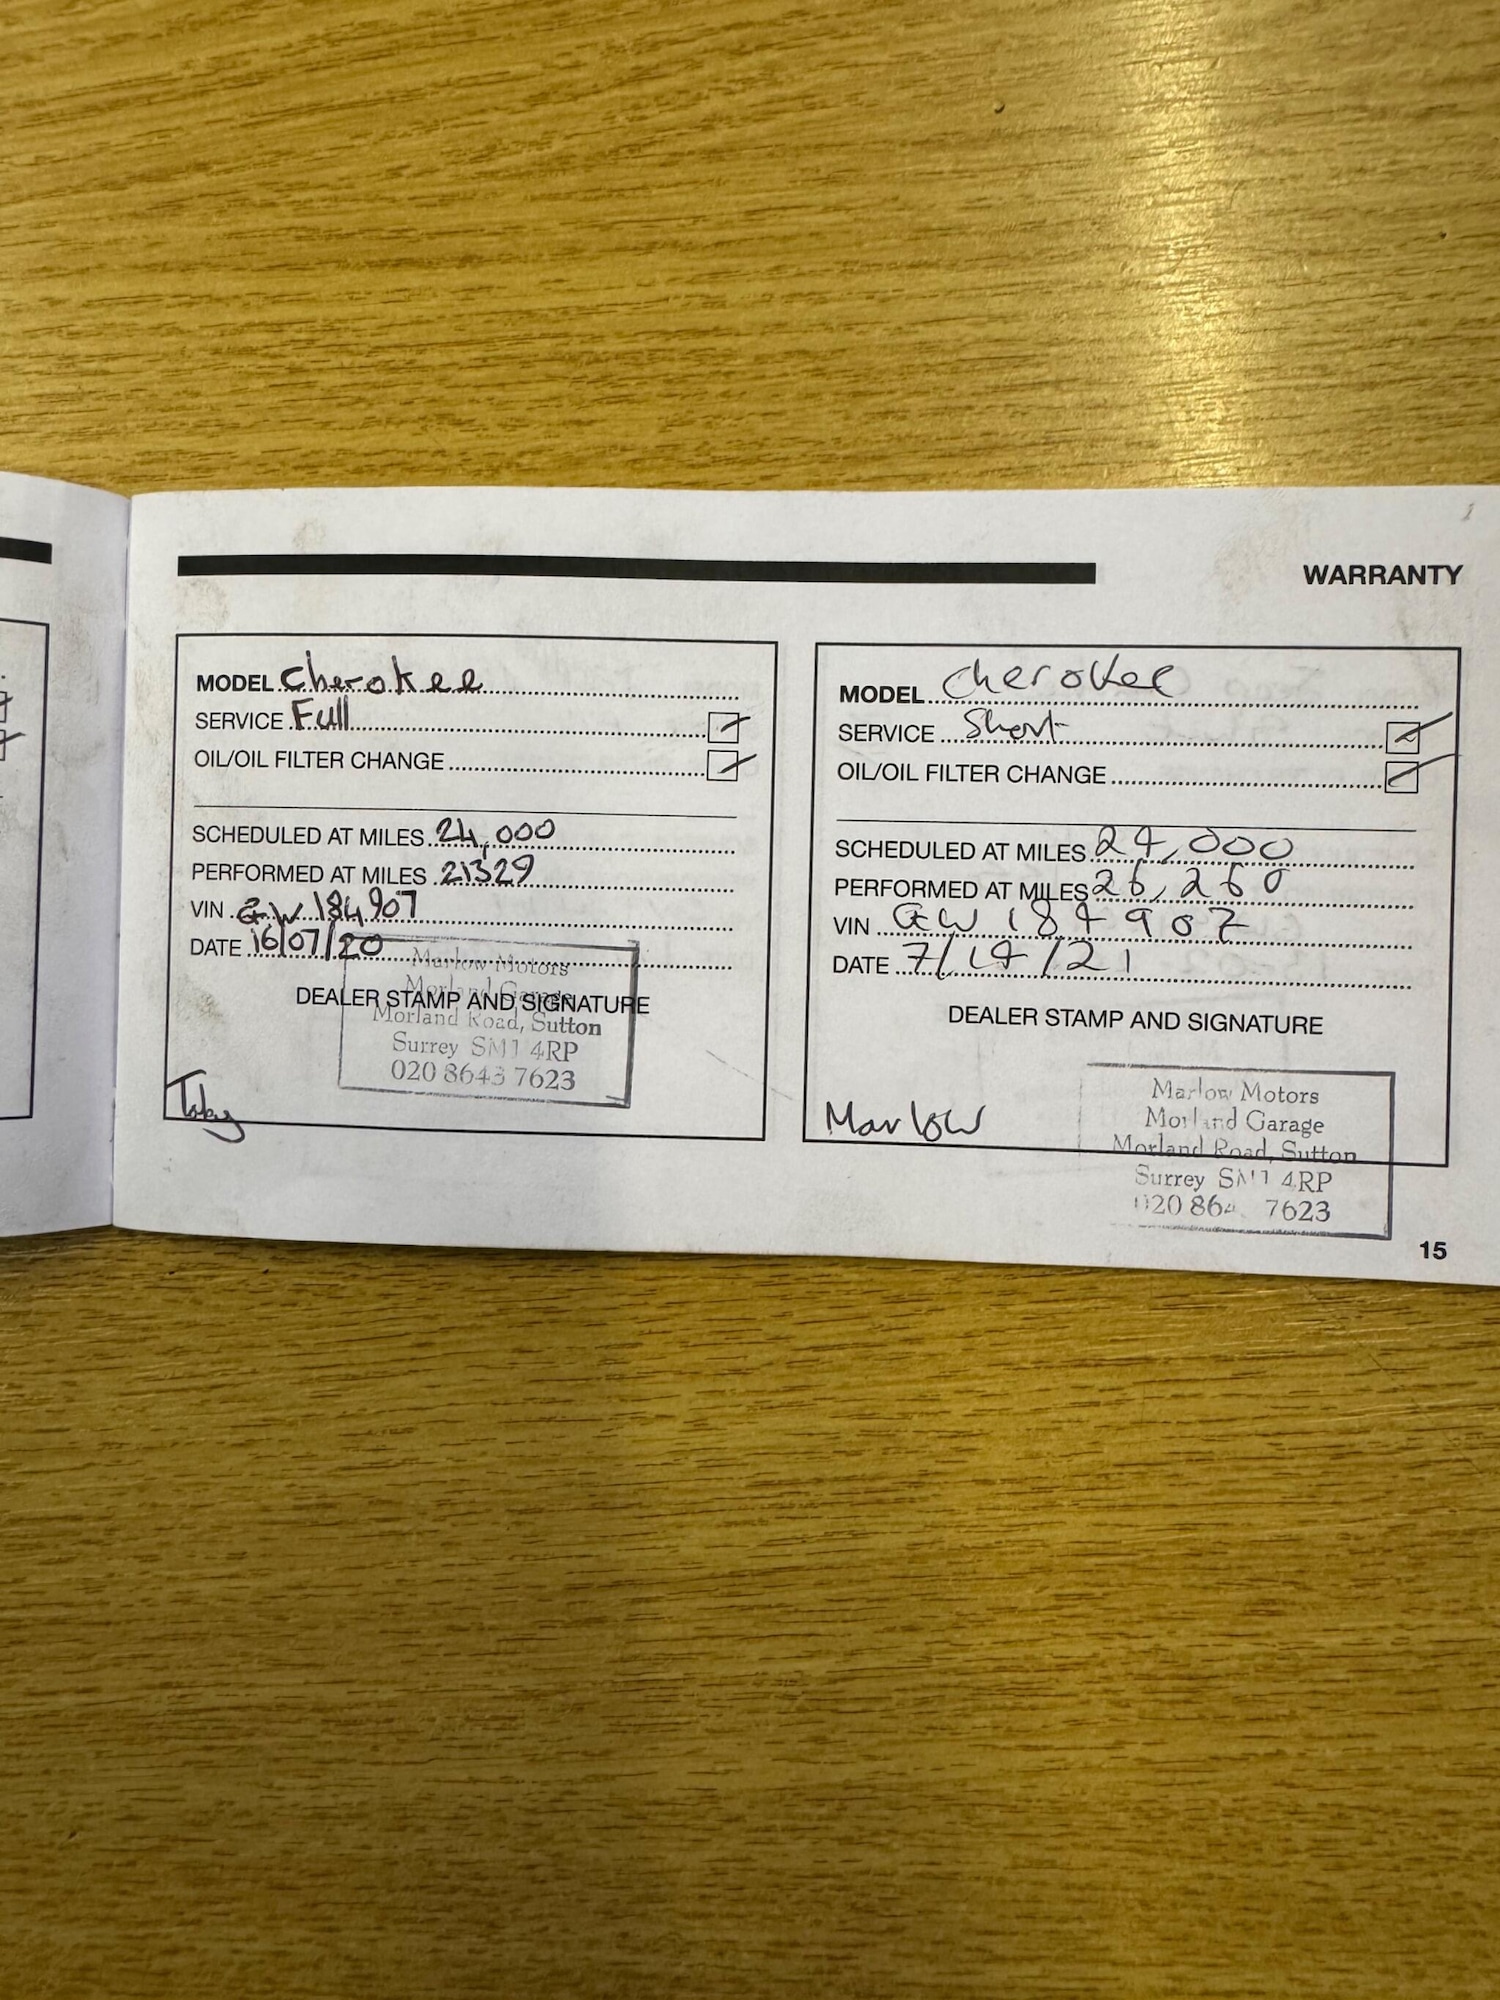 WARRANTY
MODEL Cherokee
SERVICE Full
OIL/OIL FILTER CHANGE
SCHEDULED AT MILES 24,000
PERFORMED AT MILES 21329
VIN GW 184907
DATE 16/07/20
DEALER STAMP AND SIGNATURE
Marlow Motors
Morland Garage
Morland Road, Sutton
Surrey SM1 4RP
020 8643 7623
Toby
MODEL Cherokee
SERVICE Short
OIL/OIL FILTER CHANGE
SCHEDULED AT MILES 24,000
PERFORMED AT MILES 26,260
VIN GW 184907
DATE 7/14/21
DEALER STAMP AND SIGNATURE
Marlow
Marlow Motors
Morland Garage
Morland Road, Sutton
Surrey SM1 4RP
020 864 7623
15